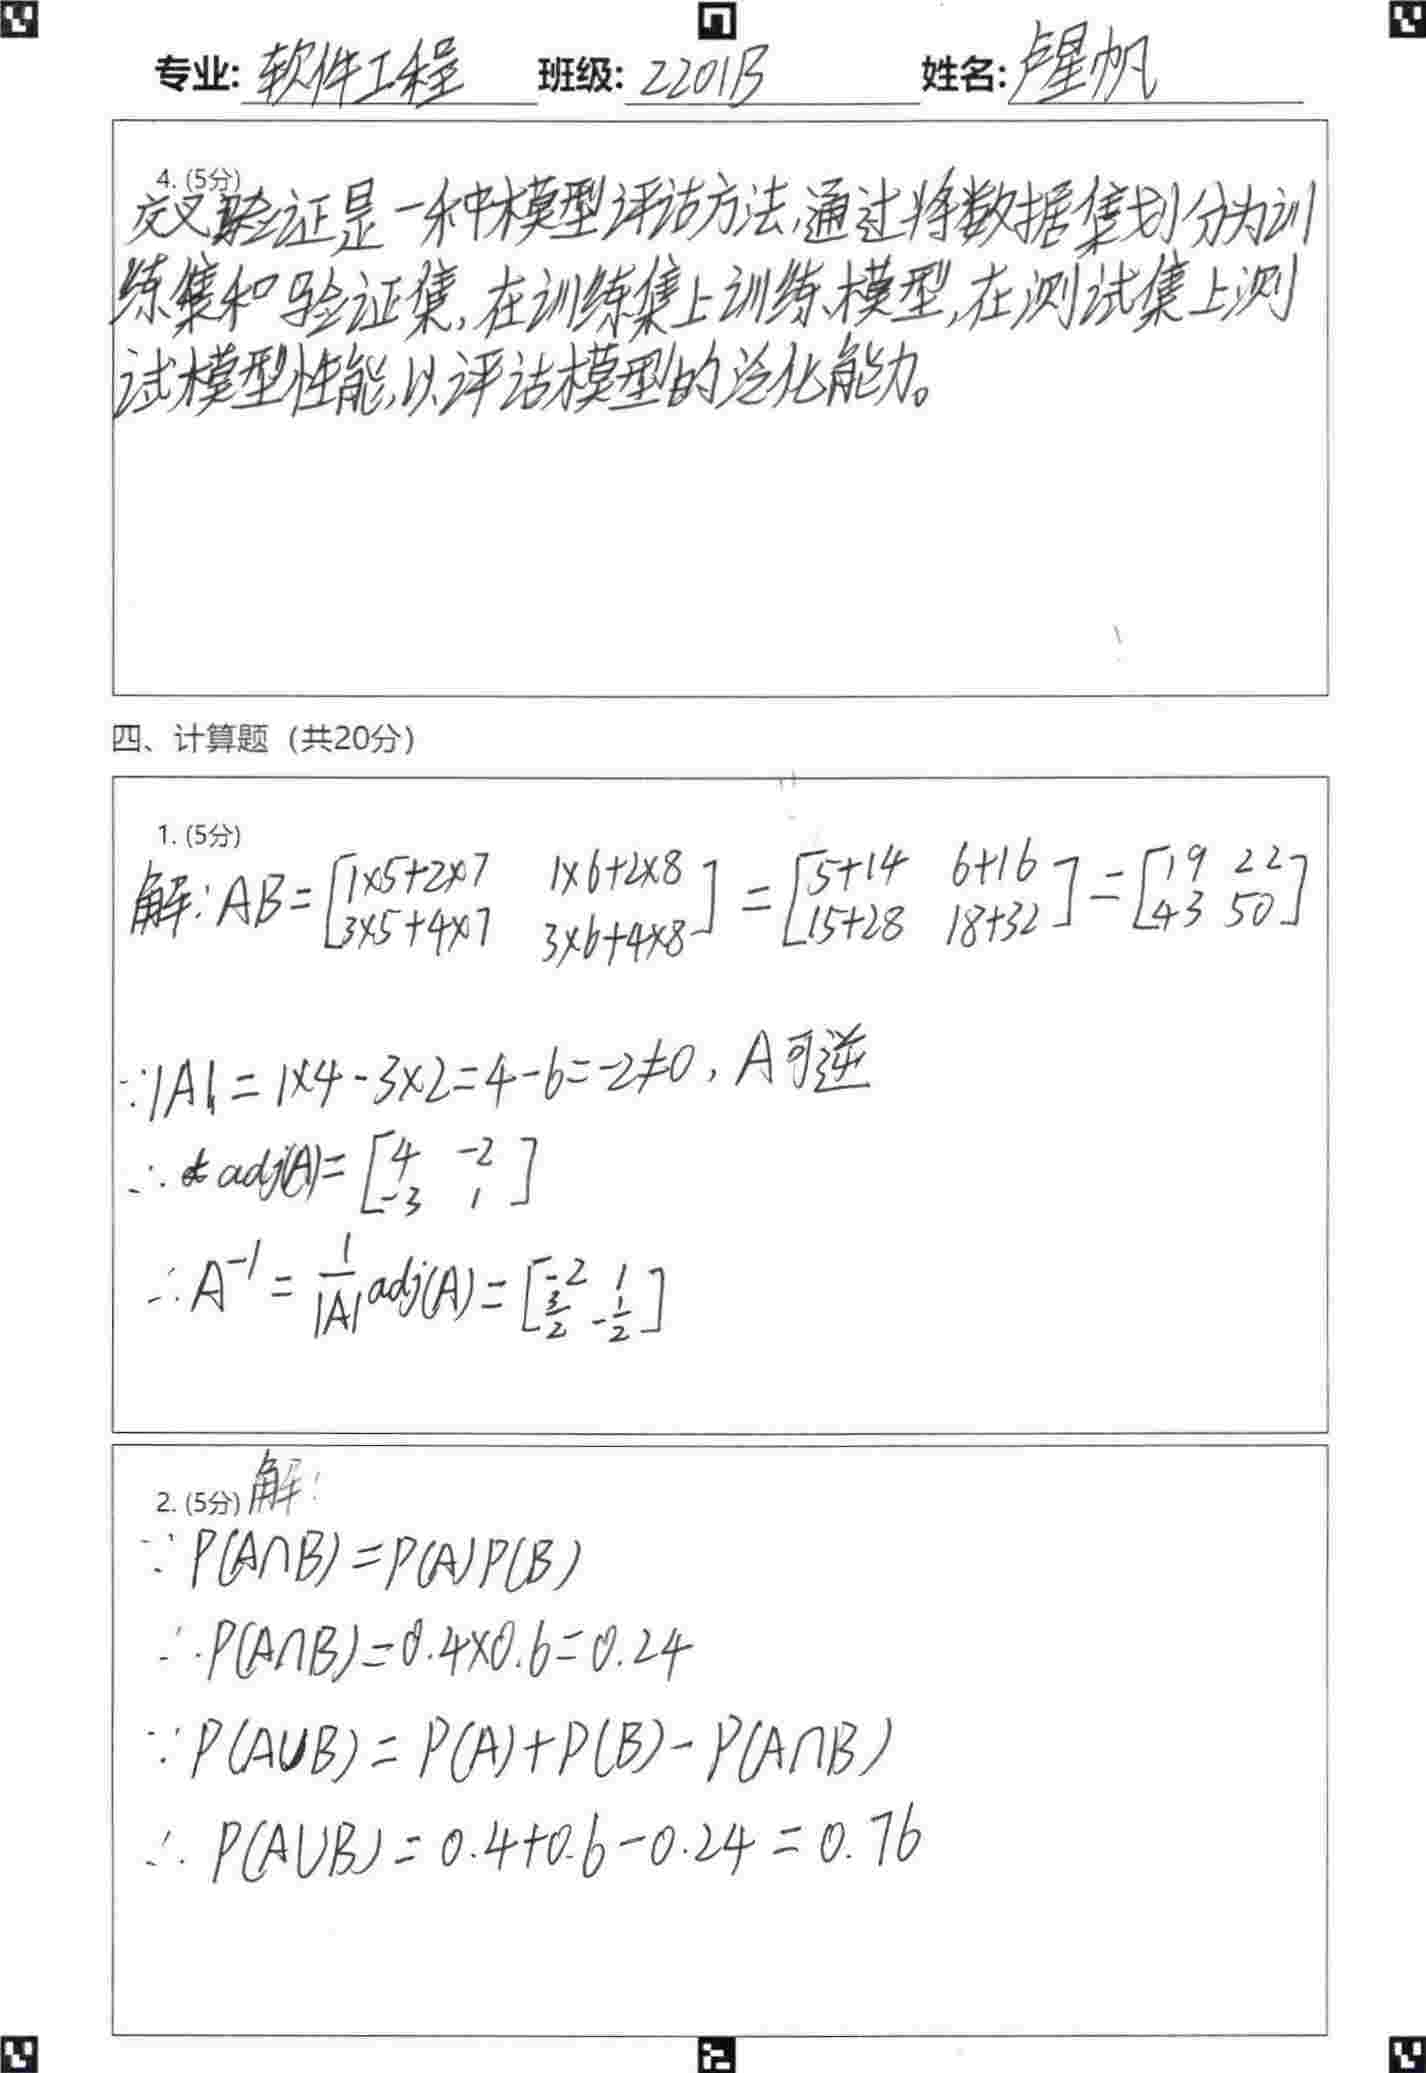 专业: 软件工程 班级: 2201B 姓名: 卢星帆
4. (5分)
交叉验证是一种模型评估方法,通过将数据集划分为训
练集和验证集,在训练集上训练模型,在测试集上测
试模型性能,以评估模型的泛化能力。
四、计算题（共20分）
1. (5分)
解: AB = [1×5+2×7 1×6+2×8 = [5+14 6+16 ] = [19 22
3×5+4×7 3×6+4×8] 15+28 18+32 43 50]
∵|A| = 1×4-3×2=4-6=-2≠0, A可逆
∴ adj(A)= [4 -2
-3 1]
∴ A⁻¹ = 1/|A| adj(A) = [-2 1
3/2 -1/2]
2. (5分) 解:
∵ P(A∩B)=P(A)P(B)
∴ P(A∩B)=0.4×0.6=0.24
∵ P(A∪B) = P(A)+P(B)-P(A∩B)
∴ P(A∪B) = 0.4+0.6-0.24 = 0.76